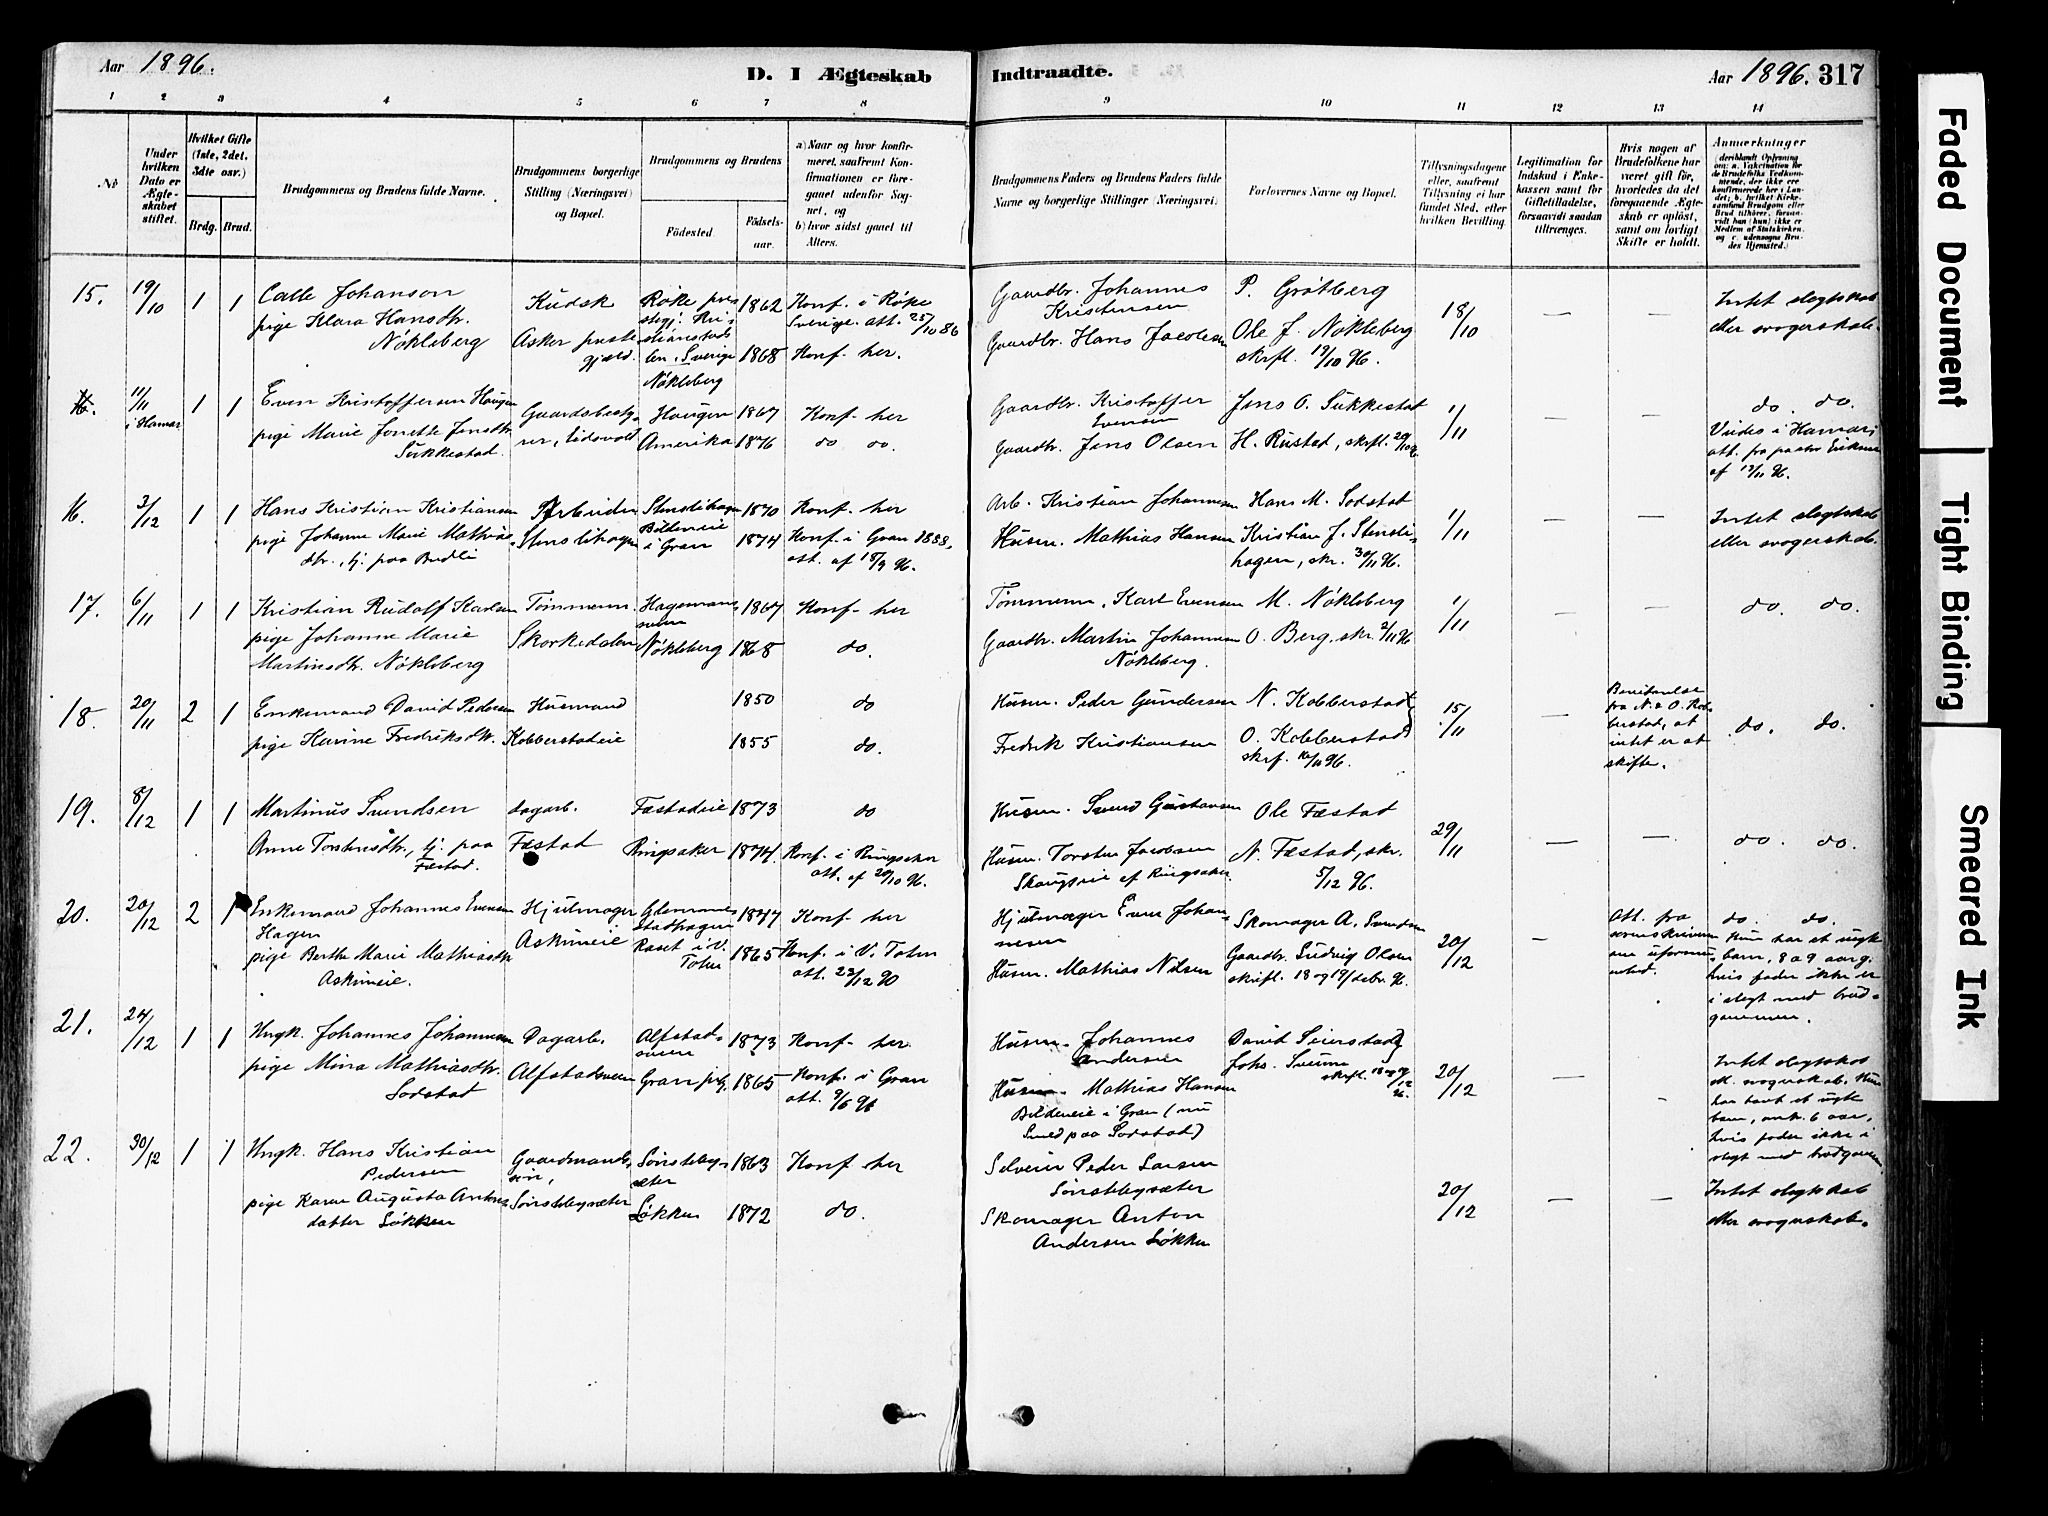 Aar 1896.
D. I Ægteskab
Indtraadte.
Aar 1896. 317
1 2 3 4 5 6 7 8 9 10 11 12 13 14
No
Under hvilken Dato er Ægteskabet stiftet.
Hvilket Gifte (1ste, 2det, 3die osv.)
Brdg. Brud.
Brudgommens og Brudens fulde Navne.
Brudgommens borgerlige Stilling (Næringsvei) og Bopæl.
Brudgommens og Brudens
Födested.
Födselsaar.
a) Naar og hvor konfirmeret, saafremt Konfirmationen er foregaaet udenfor Sognet, og
b) hvor sidst gaaet til Alters.
Brudgommens Faders og Brudens Faders fulde Navne og borgerlige Stillinger (Næringsvei).
Forlovernes Navne og Bopæl.
Tillysningsdagene eller, saafremt Tillysning ei har fundet Sted, efter hvilken Bevilling.
Legitimation for Indskud i Enkekassen samt for Giftetilladelse, forsaavidt saadan tiltrænges.
Hvis nogen af Brudefolkene har været gift för, hvorledes da det foregaaende Ægteskab er oplöst, samt om lovligt Skifte er holdt.
Anmærkninger
15. 19/10 1 1
Calle Johanson
pige Klara Hansdtr.
Nøkleberg
Kudsk
Asker prestegjæld.
Nøkleberg
1862
1868
Konf. i Røke
Sverige. att. 25/10 86
Konf. her.
Gaardbr. Johannes
Kristensen
Gaardbr. Hans Jacobsen
P. Grøtberg
Ole J. Nøkleberg
skrftl. 19/10 96.
18/10
Intet slegtskab
eller svogerskab.
16. 11/11 i Hamar 1 1
Even Kristoffersen Haugen
pige Marie Jonette Jensdtr.
Sukkestad.
Gaardsbestyrer, Eidsvold
Haugen 1867
Amerika 1876
Konf. her
do do.
Gaardbr. Kristoffer
Evensen
Gaardbr. Jens Olsen
Jens O. Sukkestad
H. Rustad, skrftl.
1/11
do. do.
Viedes i Hamar,
16. 3/12 1 1
Hans Kristian Kristiansen
pige Johanne Marie Mathiasdtr., tj. paa Budli
Arbeider
Stenslihagen
Stenslihagen 1870
Bildeneie
i Gran 1874
Konf. her
Konf. i Gran 1888,
att. af 18/9 96.
Arb. Kristian Johannesen
Husm. Mathias Hansen
Hans M. Sodstad
Kristian J. Stenslihagen, skr. 30/11 96.
1/11
Intet slegtskab
eller svogerskab.
17. 6/11 1 1
Kristian Rudolf Karlsen
pige Johanne Marie
Martinsdtr. Nøkleberg
Tømmerm.
Skorkedalen
1867
Nøkleberg 1868
Konf. her
do.
Tømmerm. Karl Evensen
Gaardbr. Martin Johannesen
Nøkleberg.
M. Nøkleberg
O. Berg, skr. 2/11 96
1/11
do. do.
18. 20/11 2 1
Enkemand David Pedersen
pige Karine Fredriksdtr.
Husmand
Kobberstadeie
1850
1855
do
do.
Husm. Peder Gundersen
Fredrik Kristiansen
N. Kobberstad
O. Kobberstad
skrf. 16/11 96.
15/11
fra N. & O. Kobberstad, at
intet er at
skifte.
do. do.
19. 8/12 1 1
Martinus Svendsen
Anne Torstensdtr., tj. paa
Fæstad.
dagarb.
Fæstad
Fæstadeie 1873
Ringsaker 1874.
do
Konf. i Ringsaker
att. af 20/10 96.
Husm. Svend Gustavsen
Husm. Torsten Jacobsen
Skougseie af Ringsaker.
Ole Fæstad
N. Fæstad, skr.
5/12 96.
29/11
do. do.
20. 20/12 2 1
Enkemand Johannes Evensen
Hagen
pige Berthe Marie Mathiasdtr.
Askimeie.
Hjulmager
Askimeie
1847
Raset i V.
Toten 1865
Konf. her
Konf. i V. Toten
att. 23/12 90
Hjulmager Even Johannesen
Husm. Mathias Nilsen
Skomager A. Svendsen
Gaardbr. Ludvig Olsen
skriftl. 18 og 19/ debr. 96.
20/12
Att. fra
do. do.
Hun har et uægte
barn, 8 a 9 aar g.
hvis fader ikke er
i slegt med brudgommen.
21. 24/12 1 1
Ungk. Johannes Johannesen
pige Mina Mathiasdtr.
Sodstad
Dagarb.
Alfstadsveen
Alfstadsveen 1873
Gran prg. 1865
Konf. her
Konf. i Gran
att. 9/6 96
Husm. Johannes
Andersen
Husm. Mathias Hansen
Bildeneie i Gran (nu
Smed paa Sodstad)
David Seierstad
Johs. Sveum
20/12
Intet slegtskab
el. svogerskab. Hun
har havt et uægte
barn, omk. 6 aar,
hvis fader ikke i
slegt med brudgommen
22. 30/12 1 1
Ungk. Hans Kristian
Pedersen
pige Karen Augusta Antonsdatter Løkken
Gaardmandssøn,
Sønstebysæter
Sønstebysæter 1863
Løkken 1872
Konf her
do.
Selveier Peder Larsen
Sønstebysæter
Skomager Anton
Andersen Løkken
20/12
Intet slegtskab
eller svogerskab.
Faded Document
Tight Binding
Smeared Ink